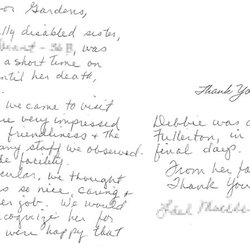 or Gardens,
lly disabled sister,
was
a short time on
until her death,
we came to visit
re very impressed
friendliness & the
any staff we observed
the facility.
cular, we thought
as so nice, caring &
her job. We would
recognize her for
were happy that
Thank Yo
Debbie was a
Fullerton, in
final days.
From her fa
Thank You